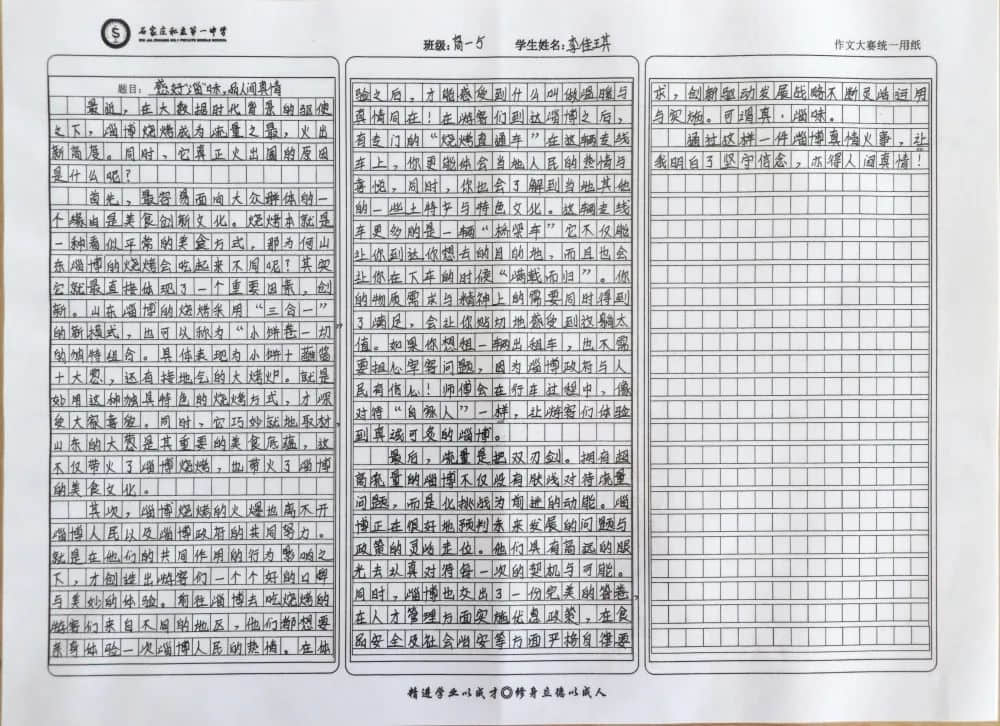 石家庄私立第一中学
SHI JIA ZHUANG NO.1 PRIVATE MIDDLE SCHOOL
班级:高一5 学生姓名:李佳琪
作文大赛统一用纸
题目:感好“淄”味,品人间真情
最近,在大数据时代背景的驱使
之下,淄博烧烤成为流量之最,火出
新高度。同时,它真正火出圈的原因
是什么呢?
首先,最容易面向大众群体的一
个缘由是美食创新文化。烧烤本就是
一种看似平常的美食方式,那为何山
东淄博的烧烤会吃起来不同呢?其实
它就最直接体现了一个重要因素,创
新。山东淄博的烧烤采用“三合一”
的新模式,也可以称为“小饼卷一切”
的独特组合。具体表现为小饼+蘸酱
+大葱,还有接地气的大烤炉。就是
妙用这种独具特色的烧烤方式,才深
受大家喜爱。同时,它巧妙就地取材,
山东的大葱是其重要的美食底蕴,这
不仅带火了淄博烧烤,也带火了淄博
的美食文化。
其次,淄博烧烤的火爆也离不开
淄博人民以及淄博政府的共同努力。
就是在他们的共同作用的行为影响之
下,才创造出游客们一个个好的口碑
与美妙的体验。前往淄博去吃烧烤的
游客们来自不同的地区,他们都想要
亲身体验一次淄博人民的热情。在体
验之后,才能感受到什么叫做温暖与
真情同在!在游客们到达淄博之后,
有专门的“烧烤直通车”在这辆专线
车上,你更能体会当地人民的热情与
喜悦,同时,你也会了解到当地其他
的一些土特产与特色文化。这辆专线
车更多的是一辆“桥梁车”它不仅能
让你到达你想去的目的地,而且也会
让你在下车的时候“满载而归”。你
的物质需求与精神上的需要同时得到
了满足,会让你贴切地感受到这趟太
值。如果你想租一辆出租车,也不需
要担心宰客问题,因为淄博政府与人
民有信心!师傅会在行车过程中,像
对待“自家人”一样,让游客们体验
到真诚可贵的淄博。
最后,流量是把双刃剑。拥有超
高流量的淄博不仅没有肤浅对待流量
问题,而是化挑战为前进的动能。淄
博正在很好地预判未来发展的问题与
政策的灵活走位。他们具有高远的眼
光去认真对待每一次的契机与可能。
同时,淄博也交出了一份完美的答卷,
在人才管理方面实施优惠政策,在食
品安全及社会治安等方面严格自律要
求,创新驱动发展战略不断灵活运用
与实施。可谓真·淄味。
通过这样一件淄博真情火事,让
我明白了坚守信念,亦得人间真情!
精进学业以成才 修身立德以成人